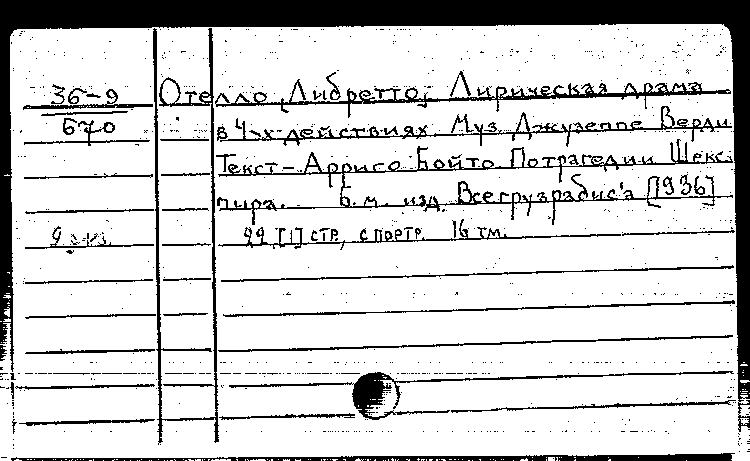 36-9 Отелло [Либретто] Лирическая драма
670 в 4-х действиях. Муз. Джузеппе Верди
Текст – Арриго Бойто По трагедии Шекс-
пира. б.м. изд. Всегрузрабис'а [1936]
22 [1] стр, с портр. 16 тм.